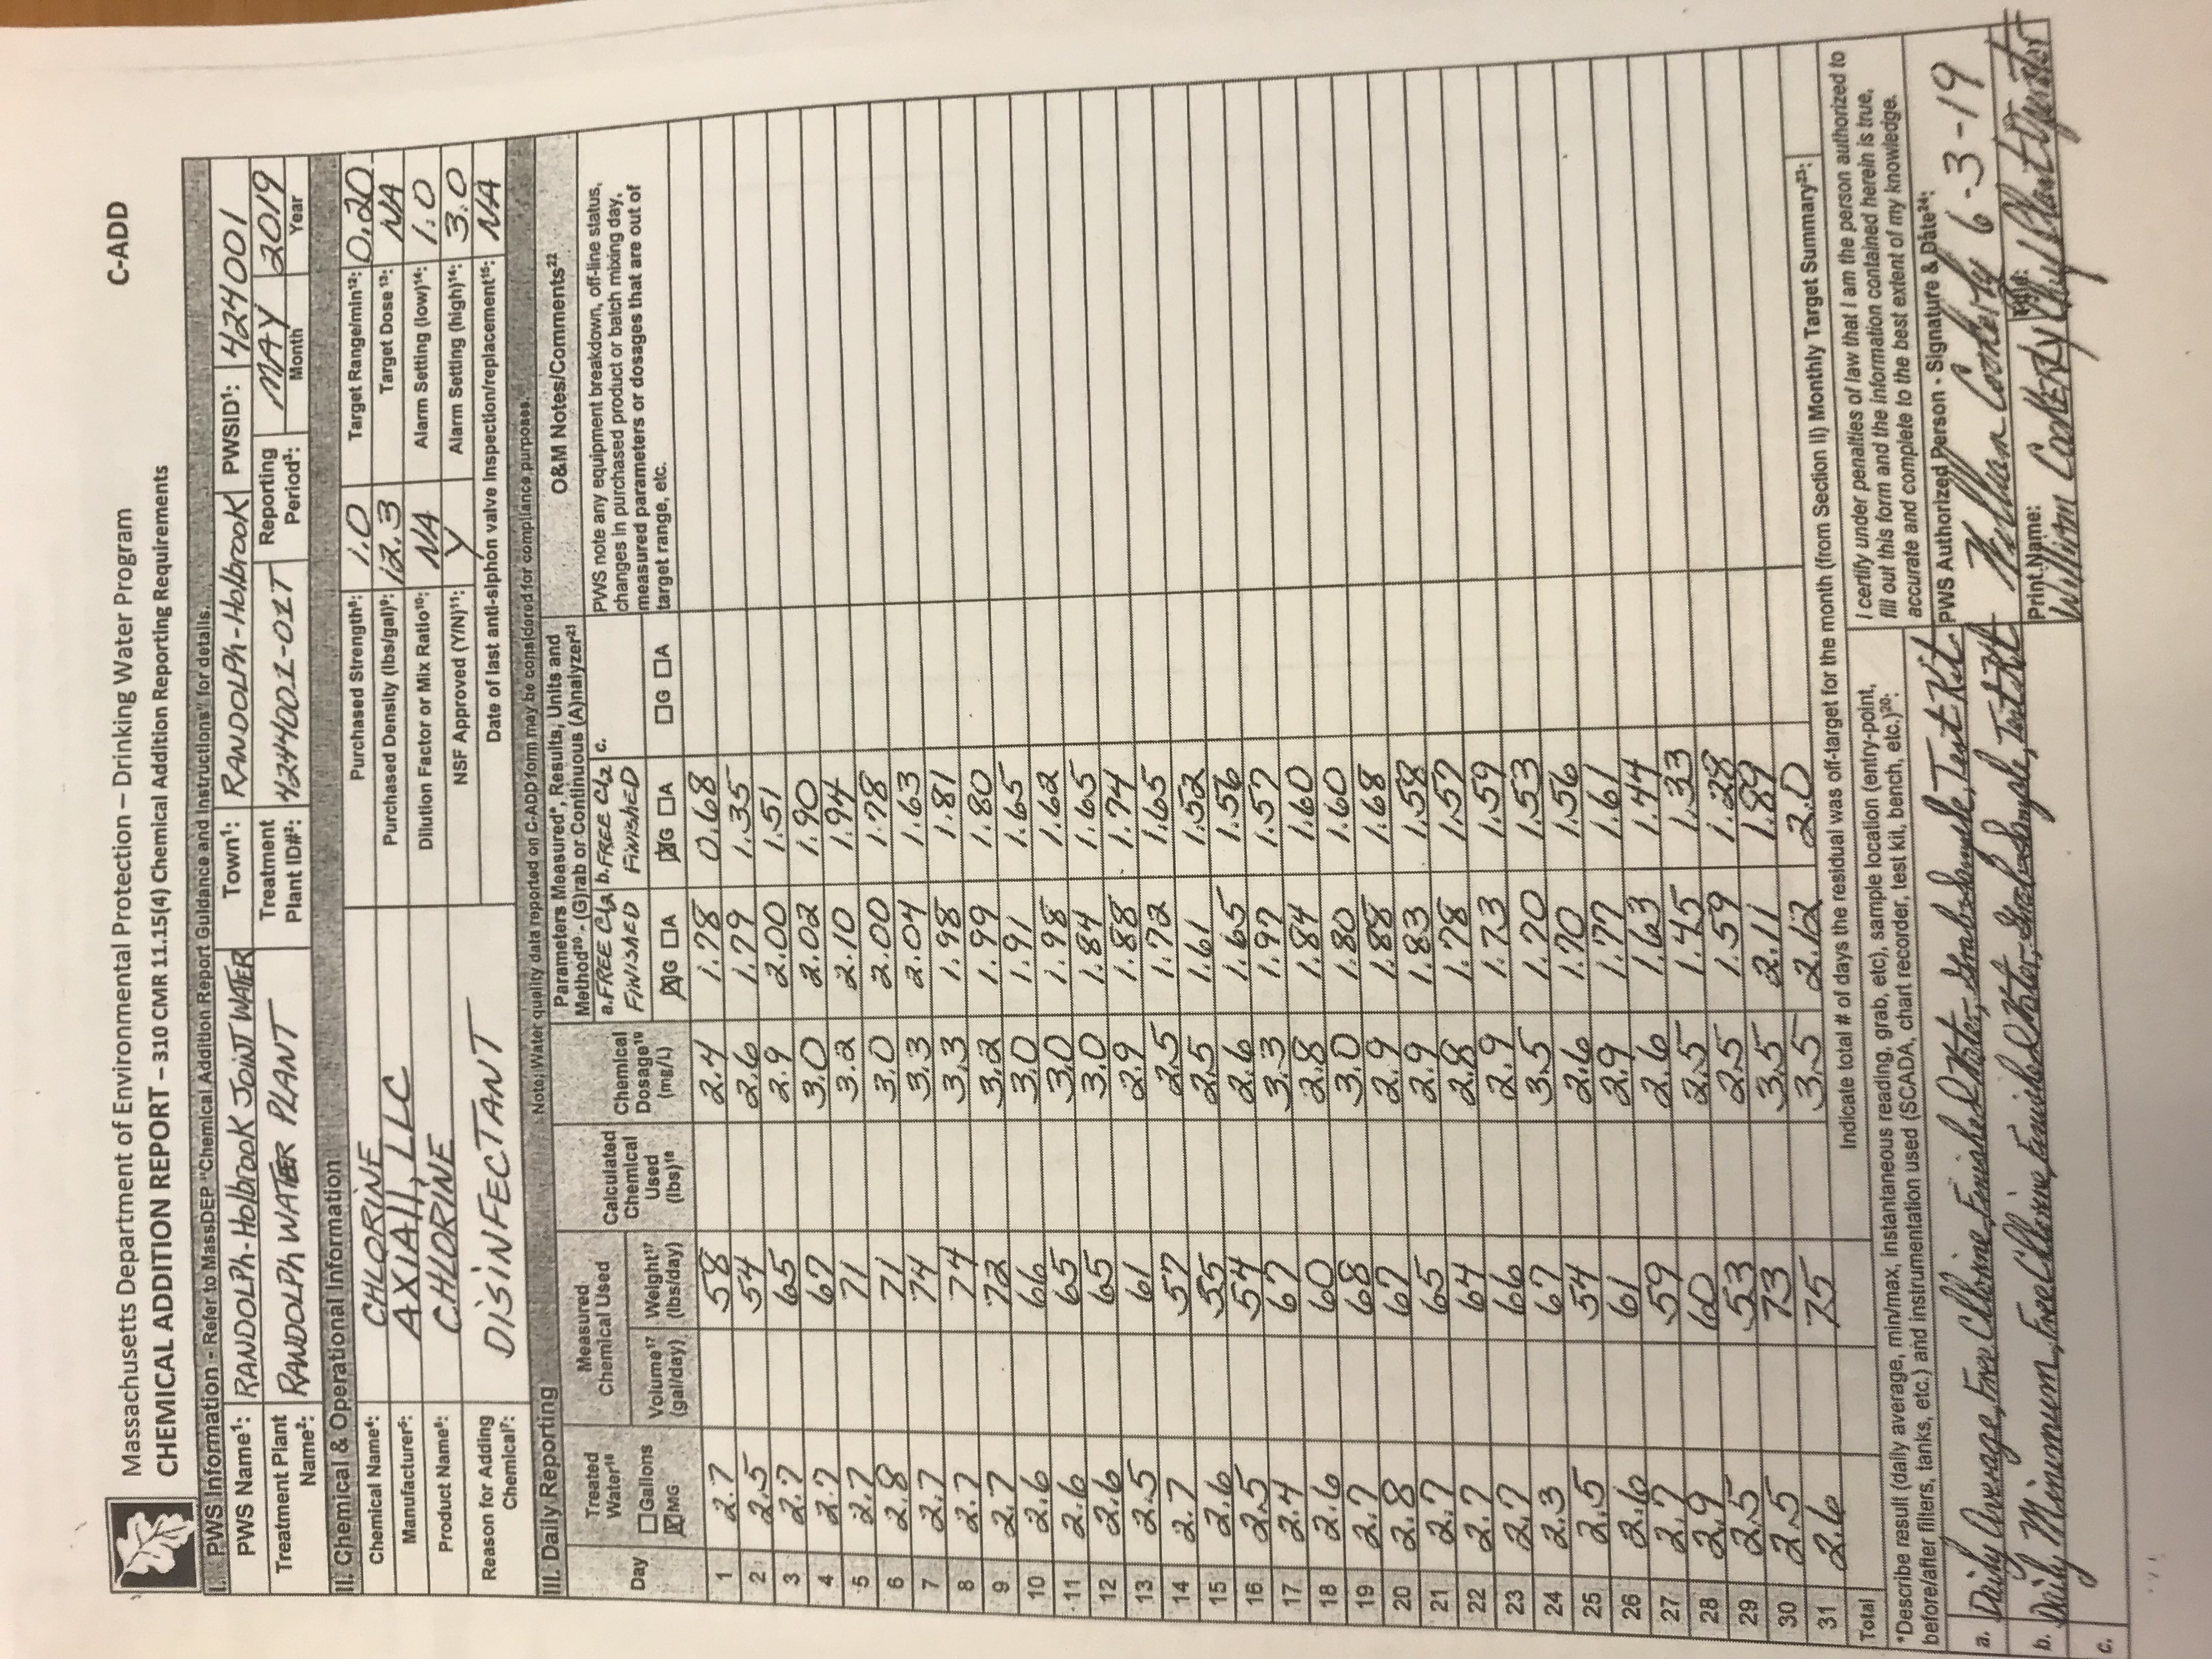 Massachusetts Department of Environmental Protection – Drinking Water Program
C-ADD
CHEMICAL ADDITION REPORT – 310 CMR 11.15(4) Chemical Addition Reporting Requirements
I. PWS Information - Refer to MassDEP "Chemical Addition Report Guidance and Instructions" for details.
PWS Name¹: RANDOLPH-HolbrooK JOiNT WATER Town¹: RANDOLPH-HolbrooK PWSID¹: 4244001
Treatment Plant Name²: RANDOLPH WATER PLANT Treatment Plant ID#²: 4244001-01T Reporting Period³: MAY 2019
Month Year
II. Chemical & Operational Information
Chemical Name⁴: CHLORINE Purchased Strength⁸: 1.0 Target Range/min¹²: 0.20
Manufacturer⁵: AXIALL, LLC Purchased Density (lbs/gal)⁹: 12.3 Target Dose¹³: NA
Product Name⁶: CHLORINE Dilution Factor or Mix Ratio¹⁰: NA Alarm Setting (low)¹⁴: 1.0
NSF Approved (Y/N)¹¹: Y Alarm Setting (high)¹⁴: 3.0
Reason for Adding Chemical⁷: DISINFECTANT Date of last anti-siphon valve inspection/replacement¹⁵: NA
Note: Water quality data reported on C-ADD form may be considered for compliance purposes.
III. Daily Reporting
Day
Treated Water¹⁶
☐Gallons
☒MG
Measured Chemical Used
Volume¹⁷ (gal/day)
Weight¹⁷ (lbs/day)
Calculated Chemical Used (lbs)¹⁸
Chemical Dosage¹⁹ (mg/L)
Parameters Measured*, Results, Units and Method²⁰ - (G)rab or Continuous (A)nalyzer²¹
a. FREE Cl2 FINISHED
☒G ☐A
b. FREE Cl2 FINISHED
☒G ☐A
c.
☐G ☐A
O&M Notes/Comments²²
PWS note any equipment breakdown, off-line status, changes in purchased product or batch mixing day, measured parameters or dosages that are out of target range, etc.
1 2.7 58 2.4 1.78 0.68
2 2.5 54 2.6 1.79 1.35
3 2.7 65 2.9 2.00 1.51
4 2.7 67 3.0 2.02 1.90
5 2.7 71 3.2 2.10 1.94
6 2.8 71 3.0 2.00 1.78
7 2.7 74 3.3 2.04 1.63
8 2.7 74 3.3 1.98 1.81
9 2.7 72 3.2 1.99 1.80
10 2.6 66 3.0 1.91 1.65
11 2.6 65 3.0 1.98 1.62
12 2.6 65 3.0 1.84 1.65
13 2.5 61 2.9 1.88 1.74
14 2.7 57 2.5 1.72 1.65
15 2.6 55 2.5 1.61 1.52
16 2.5 54 2.6 1.65 1.56
17 2.4 67 3.3 1.97 1.57
18 2.6 60 2.8 1.84 1.60
19 2.7 68 3.0 1.80 1.60
20 2.8 67 2.9 1.88 1.68
21 2.7 65 2.9 1.83 1.58
22 2.7 64 2.8 1.78 1.57
23 2.7 66 2.9 1.73 1.59
24 2.3 67 3.5 1.70 1.53
25 2.5 54 2.6 1.70 1.56
26 2.6 61 2.9 1.77 1.61
27 2.7 59 2.6 1.63 1.44
28 2.9 60 2.5 1.45 1.33
29 2.5 53 2.5 1.59 1.28
30 2.5 73 3.5 2.11 1.89
31 2.6 75 3.5 2.12 2.0
Total
Indicate total # of days the residual was off-target for the month (from Section II) Monthly Target Summary²³:
*Describe result (daily average, min/max, instantaneous reading, grab, etc), sample location (entry-point, before/after filters, tanks, etc.) and instrumentation used (SCADA, chart recorder, test kit, bench, etc.)²⁰:
a. Daily Average, Free Chlorine, Finished Water, Grab Sample, Test Kit
b. Daily Minimum, Free Chlorine, Finished Water, Grab Sample, Test Kit
c.
I certify under penalties of law that I am the person authorized to fill out this form and the information contained herein is true, accurate and complete to the best extent of my knowledge.
PWS Authorized Person - Signature & Date²⁴:
6-3-19
Print Name: William
Title: